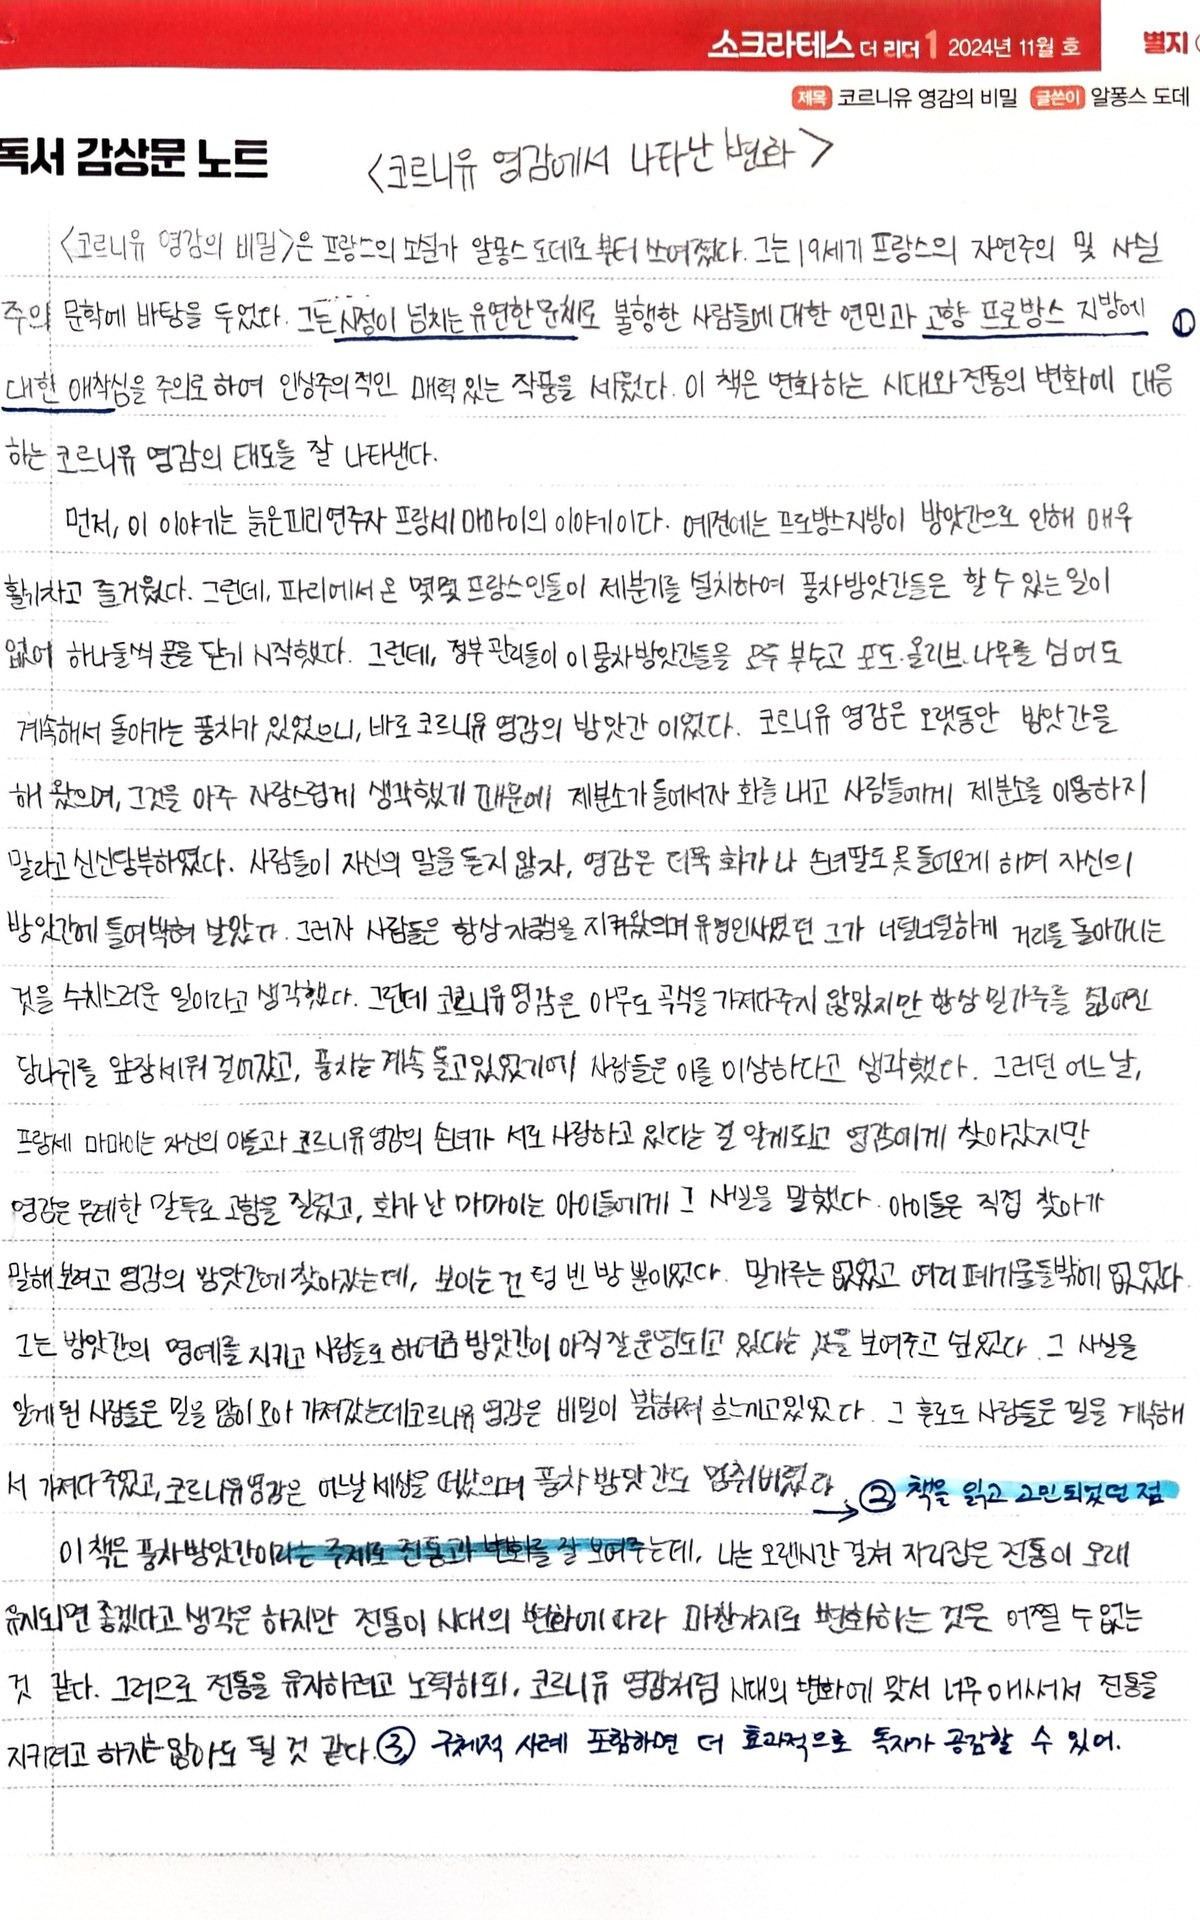 소크라테스 더 리더 1 2024년 11월 호 별지
제목 코르니유 영감의 비밀 글쓴이 알퐁스 도데
독서 감상문 노트 <코르니유 영감에서 나타난 변화>
<코르니유 영감의 비밀>은 프랑스의 소설가 알퐁스 도데로 부터 쓰여졌다. 그는 19세기 프랑스의 자연주의 및 사실
주의 문학에 바탕을 두었다. 그는 시정이 넘치는 유연한 문체로 불행한 사람들에 대한 연민과 고향 프로방스 지방에 ①
대한 애착심을 주의로 하여 인상주의적인 매력 있는 작품을 세웠다. 이 책은 변화하는 시대와 전통의 변화에 대응
하는 코르니유 영감의 태도를 잘 나타낸다.
먼저, 이 이야기는 늙은 피리 연주자 프랑세 마마이의 이야기이다. 예전에는 프로방스지방이 방앗간으로 인해 매우
활기차고 즐거웠다. 그런데, 파리에서 온 몇몇 프랑스인들이 제분기를 설치하여 풍차방앗간들은 할 수 있는 일이
없어 하나둘씩 문을 닫기 시작했다. 그런데, 정부 관리들이 이 풍차방앗간들을 모두 부수고 포도·올리브 나무를 심어도
계속해서 돌아가는 풍차가 있었으니, 바로 코르니유 영감의 방앗간 이었다. 코르니유 영감은 오랫동안 방앗간을
해 왔으며, 그것을 아주 자랑스럽게 생각했기 때문에 제분소가 들어서자 화를 내고 사람들에게 제분소를 이용하지
말라고 신신당부하였다. 사람들이 자신의 말을 듣지 않자, 영감은 더욱 화가 나 손녀딸도 못 들어오게 하며 자신의
방앗간에 틀어박혀 살았다. 그러자 사람들은 항상 자긍심을 지켜왔으며 유명인사였던 그가 너덜너덜하게 거리를 돌아다니는
것을 수치스러운 일이라고 생각했다. 그런데 코르니유 영감은 아무도 곡식을 가져다주지 않았지만 항상 밀가루를 짊어진
당나귀를 앞장세워 걸어갔고, 풍차는 계속 돌고있었기에 사람들은 이를 이상하다고 생각했다. 그러던 어느날,
프랑세 마마이는 자신의 아들과 코르니유 영감의 손녀가 서로 사랑하고 있다는 걸 알게되고 영감에게 찾아갔지만
영감은 무례한 말투로 고함을 질렀고, 화가 난 마마이는 아이들에게 그 사실을 말했다. 아이들은 직접 찾아가
말해 보려고 영감의 방앗간에 찾아갔는데, 보이는 건 텅 빈 방 뿐이었다. 밀가루는 없었고 여러 폐기물들밖에 없었다.
그는 방앗간의 명예를 지키고 사람들로 하여금 방앗간이 아직 잘 운영되고 있다는 것을 보여주고 싶었다. 그 사실을
알게 된 사람들은 밀을 많이 모아 가져갔는데 코르니유 영감은 비밀이 밝혀져 흐느끼고있었다. 그 후로도 사람들은 밀을 계속해
서 가져다 주었고, 코르니유영감은 어느날 세상을 떠났으며 풍차 방앗간도 멈춰버렸다 → ② 책을 읽고 고민되었던 점
이 책은 풍차방앗간이라는 주제로 전통과 변화를 잘 보여주는데, 나는 오랜시간 걸쳐 자리잡은 전통이 오래
유지되면 좋겠다고 생각은 하지만 전통이 시대의 변화에 따라 마찬가지로 변화하는 것은 어쩔 수 없는
것 같다. 그러므로 전통을 유지하려고 노력하되, 코르니유 영감처럼 시대의 변화에 맞서 너무 애써서 전통을
지키려고 하지는 않아도 될 것 같다. ③ 구체적 사례 포함하면 더 효과적으로 독자가 공감할 수 있어.